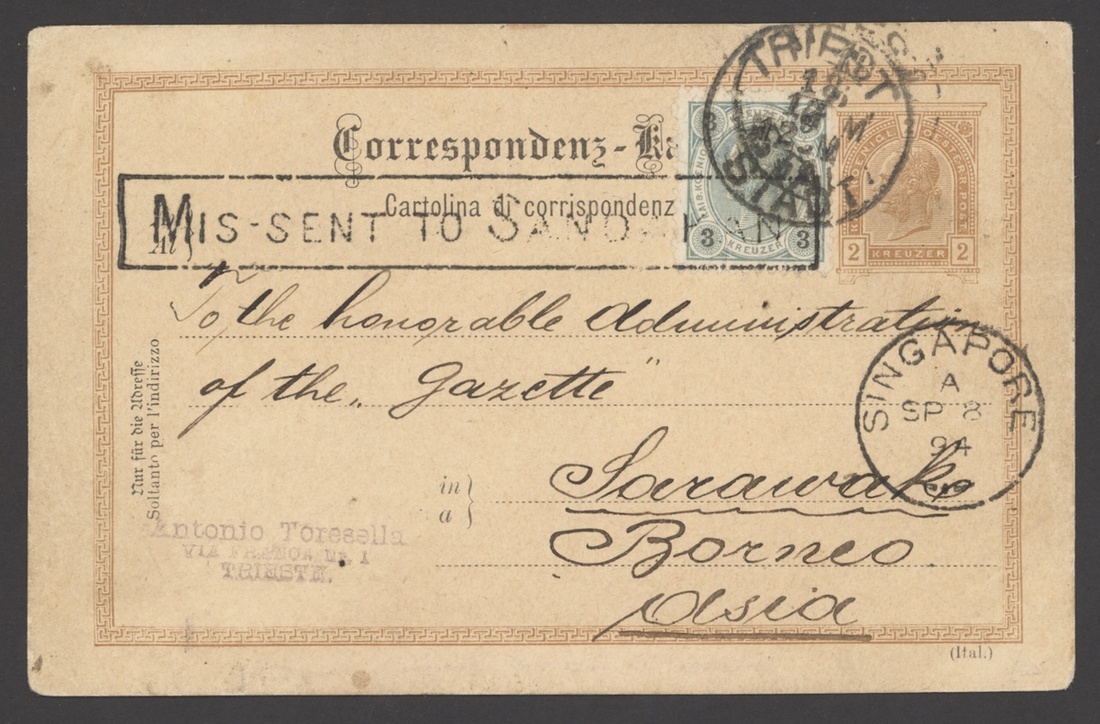 Correspondenz-Ka
Cartolina di corrispondenz
MIS-SENT TO SANDAKAN
An}
KAIS. KOENIGL.
3 KREUZER 3
KOENIGL. OESTERR. POST
2 KREUZER 2
TRIEST
STADT
To the honorable Administration
of the „Gazette"
Nur für die Adresse
Soltanto per l'indirizzo
SINGAPORE
A
SP 8
94
in
a}
Sarawak
Borneo
Asia
Antonio Toresella
TRIESTE.
(Ital.)